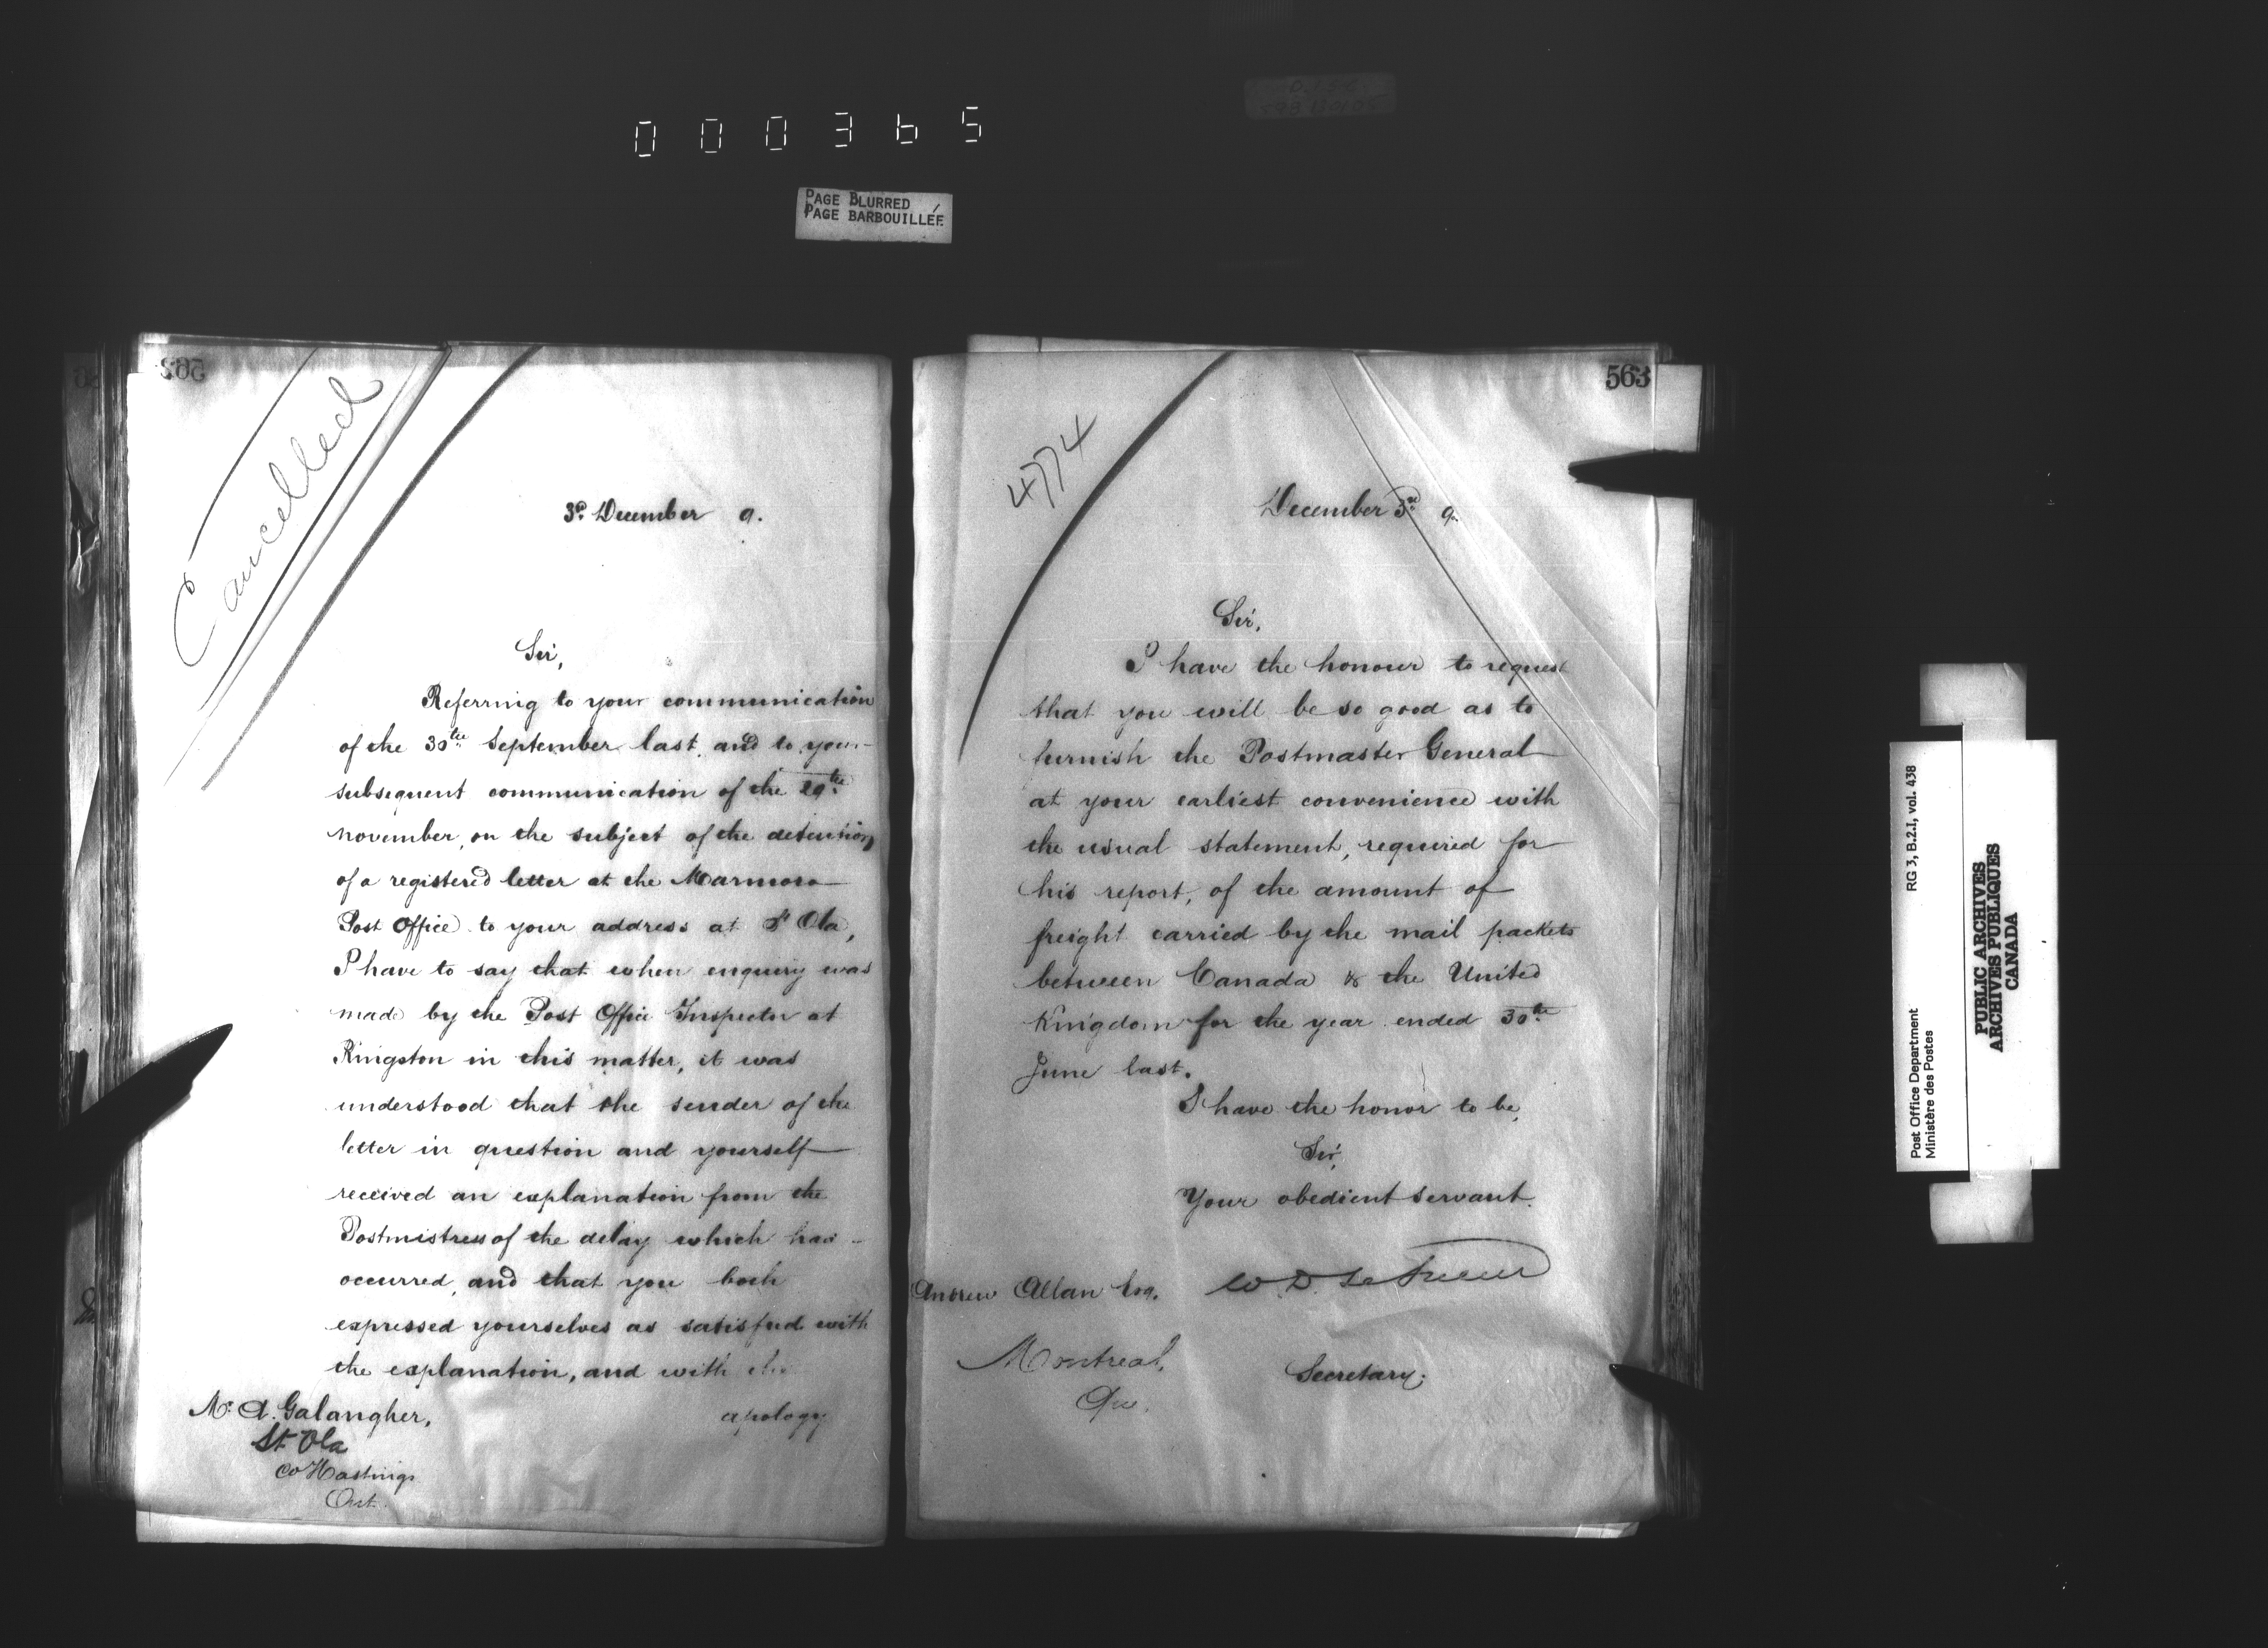 000365
PAGE BLURRED
PAGE BARBOUILLÉE
Cancelled
3d December 9.
Sir,
Referring to your communication
of the 30th September last, and to your
subsequent communication of the 29th
November, on the subject of the detention
of a registered letter at the Marmora
Post Office to your address at St Ola,
I have to say that when enquiry was
made by the Post Office Inspector at
Kingston in this matter, it was
understood that the sender of the
letter in question and yourself
received an explanation from the
Postmistress of the delay which had
occurred, and that you both
expressed yourselves as satisfied with
the explanation, and with the
apology
Mr. A. Galangher,
St Ola
Co Hastings
Ont.
563
4774
December 3rd 9.
Sir,
I have the honour to request
that you will be so good as to
furnish the Postmaster General
at your earliest convenience with
the usual statement, required for
his report, of the amount of
freight carried by the mail packets
between Canada & the United
Kingdom for the year ended 30th
June last.
I have the honor to be,
Sir,
Your obedient servant.
W. D. LeSueur
Secretary.
Andrew Allan Esq.
Montreal,
Que.
RG 3, B.2.I, vol. 438
Post Office Department
Ministère des Postes
PUBLIC ARCHIVES
ARCHIVES PUBLIQUES
CANADA